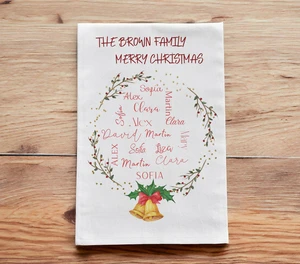 THE BROWN FAMILY
MERRY CHRISTMAS
Sofia
Alex
Martin
Sofia
Clara
Alex
Clara
David
Martin
Mary
Alex
Sofia
Liza
Martin
Clara
SOFIA